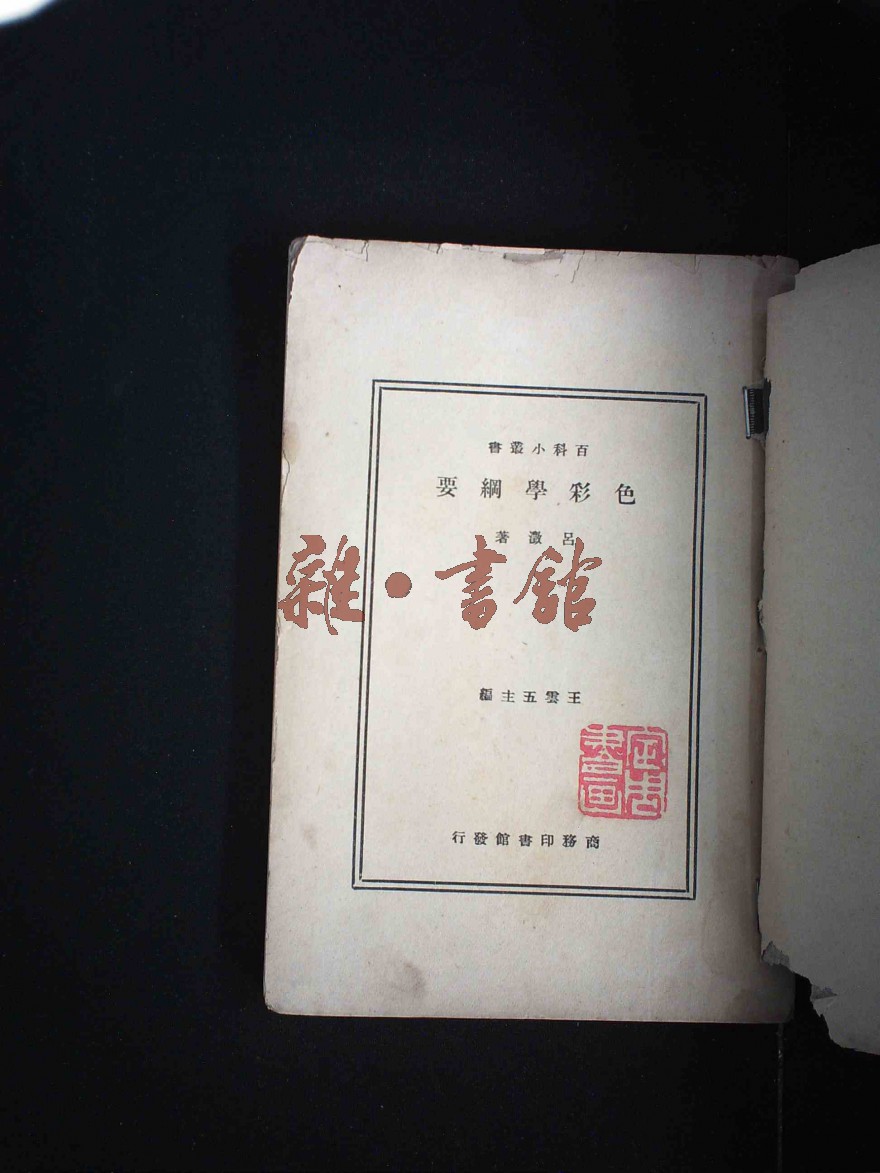 百科小叢書
色彩學綱要
呂澂著
雜·書館
王雲五主編
商務印書館發行